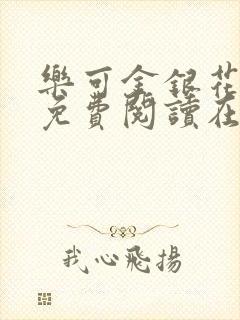 樂可金銀花
免費閱讀在
我心飛揚